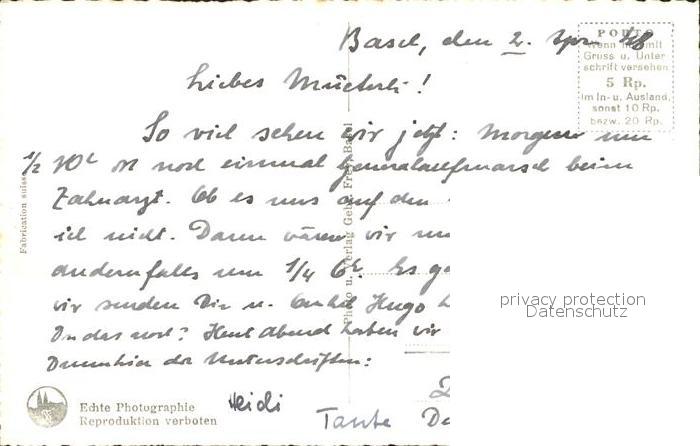 Basel, den 2. Apr. 48
PORTO
Wenn nur mit
Gruss u. Unter
schrift versehen
5 Rp.
im In- u. Ausland,
sonst 10 Rp.
bezw. 20 Rp.
Liebes Mütterli!
So viel sehen wir jetzt: Morgen um
1/2 10h ist noch einmal Generalaufmarsch beim
Zahnarzt. Ob es uns auf den
ich nicht. Dann wären wir um
andernfalls um 1/4 6h. Es
wir senden Dir u. Onkel Hugo
Du das noch? Heut Abend haben wir
der Unterschriften:
Heidi
Tante
Fabrication suisse
Photo u. Verlag Gebr. Frey, Basel
privacy protection
Datenschutz
Echte Photographie
Reproduktion verboten